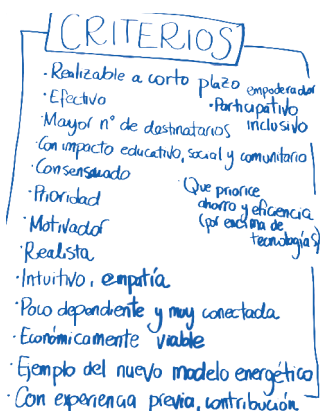 CRITERIOS
· Realizable a corto plazo
· Efectivo
empoderador
· Participativo
inclusivo
· Mayor nº de destinatarios
· Con impacto educativo, social y comunitario
· Consensuado
· Que priorice
ahorro y eficiencia
(por encima de
tecnologías)
· Prioridad
· Motivador
· Realista
· Intuitivo, empatía
· Poco dependiente y muy conectada
· Económicamente viable
· Ejemplo del nuevo modelo energético
· Con experiencia previa, contribución